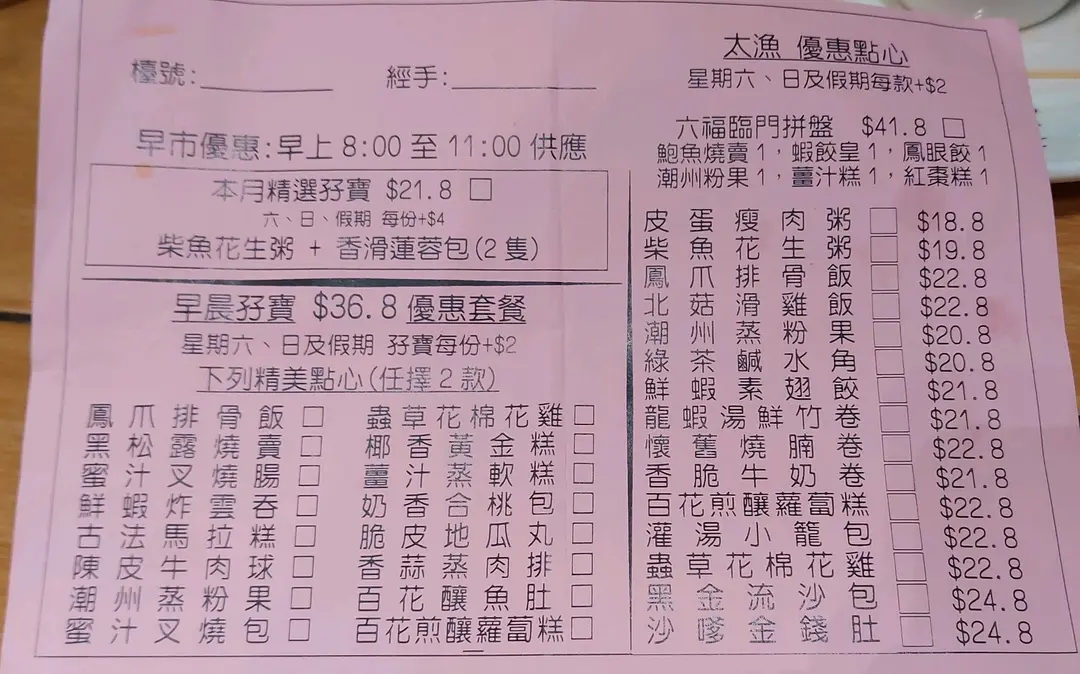 檯號:________ 經手:________
早市優惠:早上 8:00 至 11:00 供應
本月精選孖寶 $21.8 □
六、日、假期 每份+$4
柴魚花生粥 + 香滑蓮蓉包(2隻)
早晨孖寶 $36.8 優惠套餐
星期六、日及假期 孖寶每份+$2
下列精美點心(任擇2款)
鳳爪排骨飯 □ 蟲草花棉花雞 □
黑松露燒賣 □ 椰香黃金糕 □
蜜汁叉燒腸 □ 薑汁蒸軟糕 □
鮮蝦炸雲吞 □ 奶香合桃包 □
古法馬拉糕 □ 脆皮地瓜丸 □
陳皮牛肉球 □ 香蒜蒸肉排 □
潮州蒸粉果 □ 百花釀魚肚 □
蜜汁叉燒包 □ 百花煎釀蘿蔔糕 □
太漁 優惠點心
星期六、日及假期每款+$2
六福臨門拼盤 $41.8 □
鮑魚燒賣1，蝦餃皇1，鳳眼餃1
潮州粉果1，薑汁糕1，紅棗糕1
皮蛋瘦肉粥 □ $18.8
柴魚花生粥 □ $19.8
鳳爪排骨飯 □ $22.8
北菇滑雞飯 □ $22.8
潮州蒸粉果 □ $20.8
綠茶鹹水角 □ $20.8
鮮蝦素翅餃 □ $21.8
龍蝦湯鮮竹卷 □ $21.8
懷舊燒腩卷 □ $22.8
香脆牛奶卷 □ $21.8
百花煎釀蘿蔔糕 □ $22.8
灌湯小龍包 □ $22.8
蟲草花棉花雞 □ $22.8
黑金流沙包 □ $24.8
沙嗲金錢肚 □ $24.8